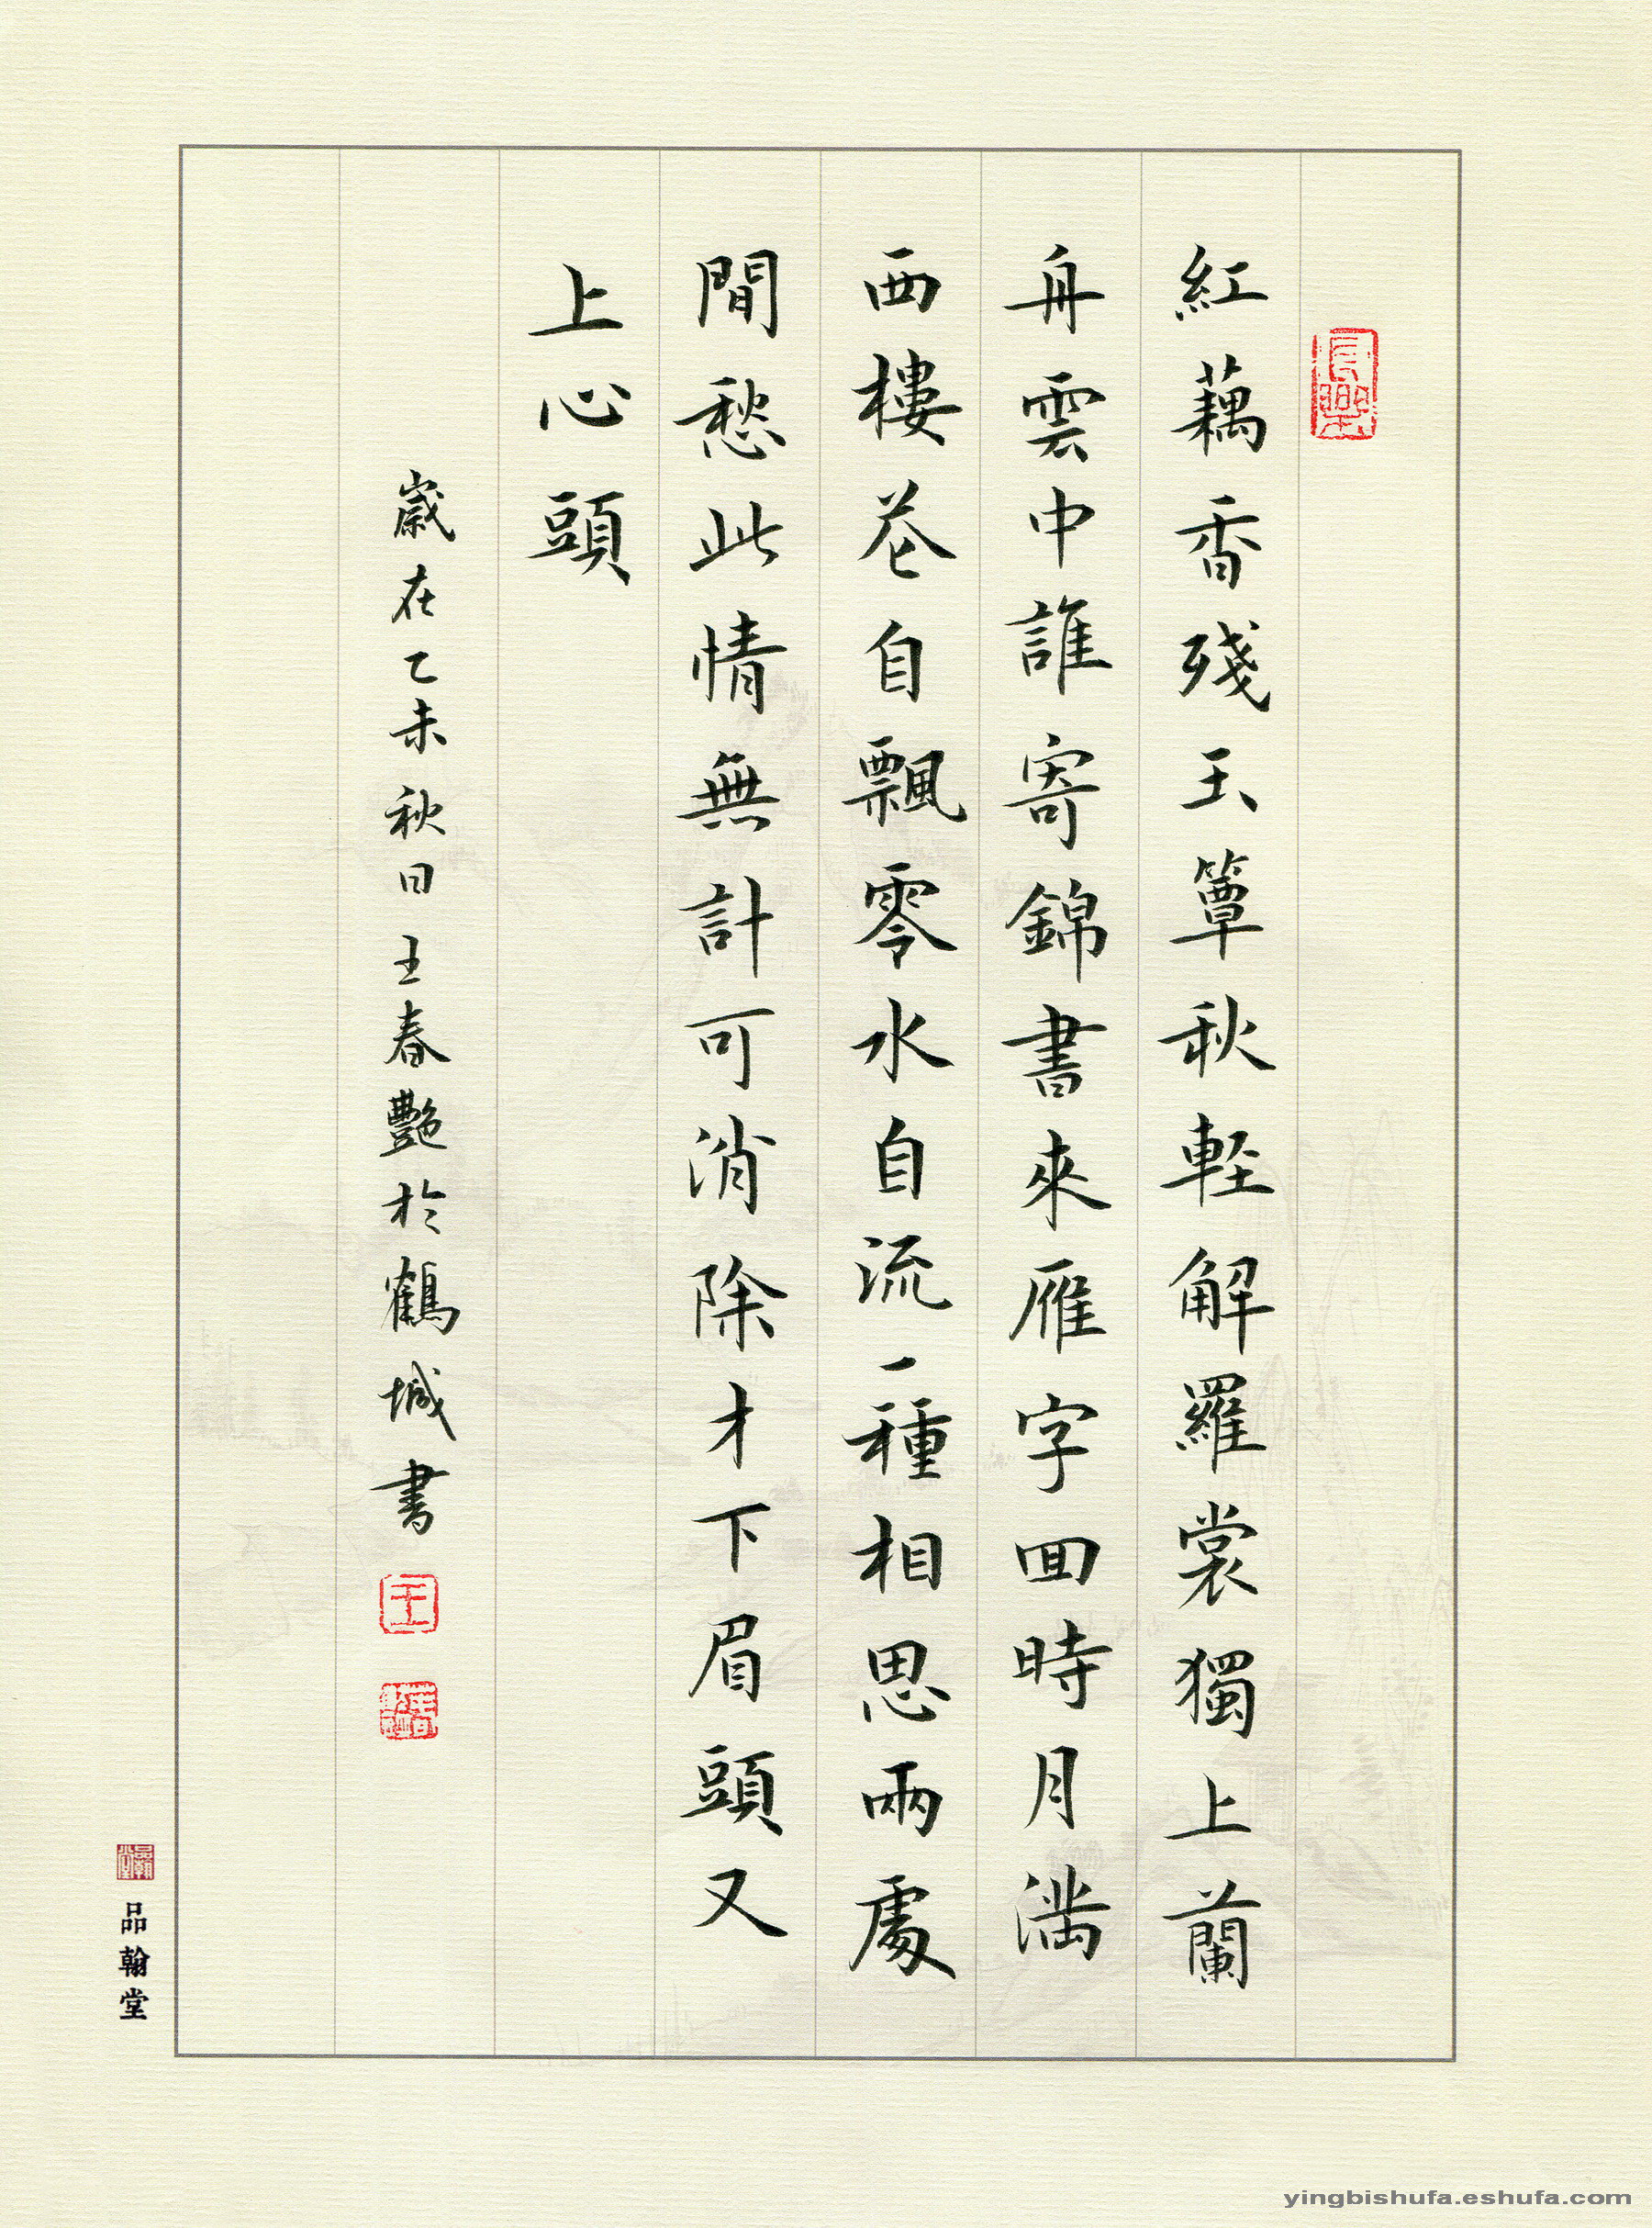 紅藕香殘玉簟秋輕解羅裳獨上蘭
舟雲中誰寄錦書來雁字回時月滿
西樓花自飄零水自流一種相思兩處
閒愁此情無計可消除才下眉頭又
上心頭
歲在乙未秋日王春艷於鶴城書
王
品翰堂
yingbishufa.eshufa.com